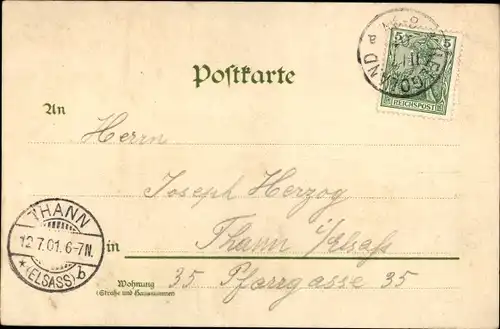 5 5
REICHSPOST
HELGOLAND
a
Postkarte
An
Herrn
Joseph Herzog
THANN
12.7.01.6-7N.
* (ELSASS) b
in Thann i/Elsaß
Wohnung 35 Pfarrgasse 35
(Straße und Hausnummer)